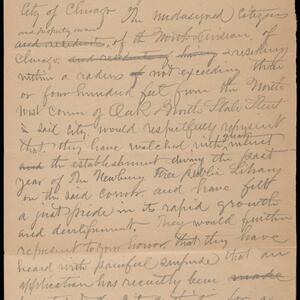 City of Chicago. The undersigned citizens
and property owners
and residents, of the North Division of
Chicago, and residents of having residing
within a radius of not exceeding three
or four hundred feet from the North
west corner of Oak & North State Street
in said City, would respectfully represent
that they have watched with interest
and the establishment during the past
year of The Newberry Free Public Library
on the said corner, and have felt
a just pride in its rapid growth
and development. They would further
represent to your honor, that they have
heard with painful surprise that an
application has recently been made